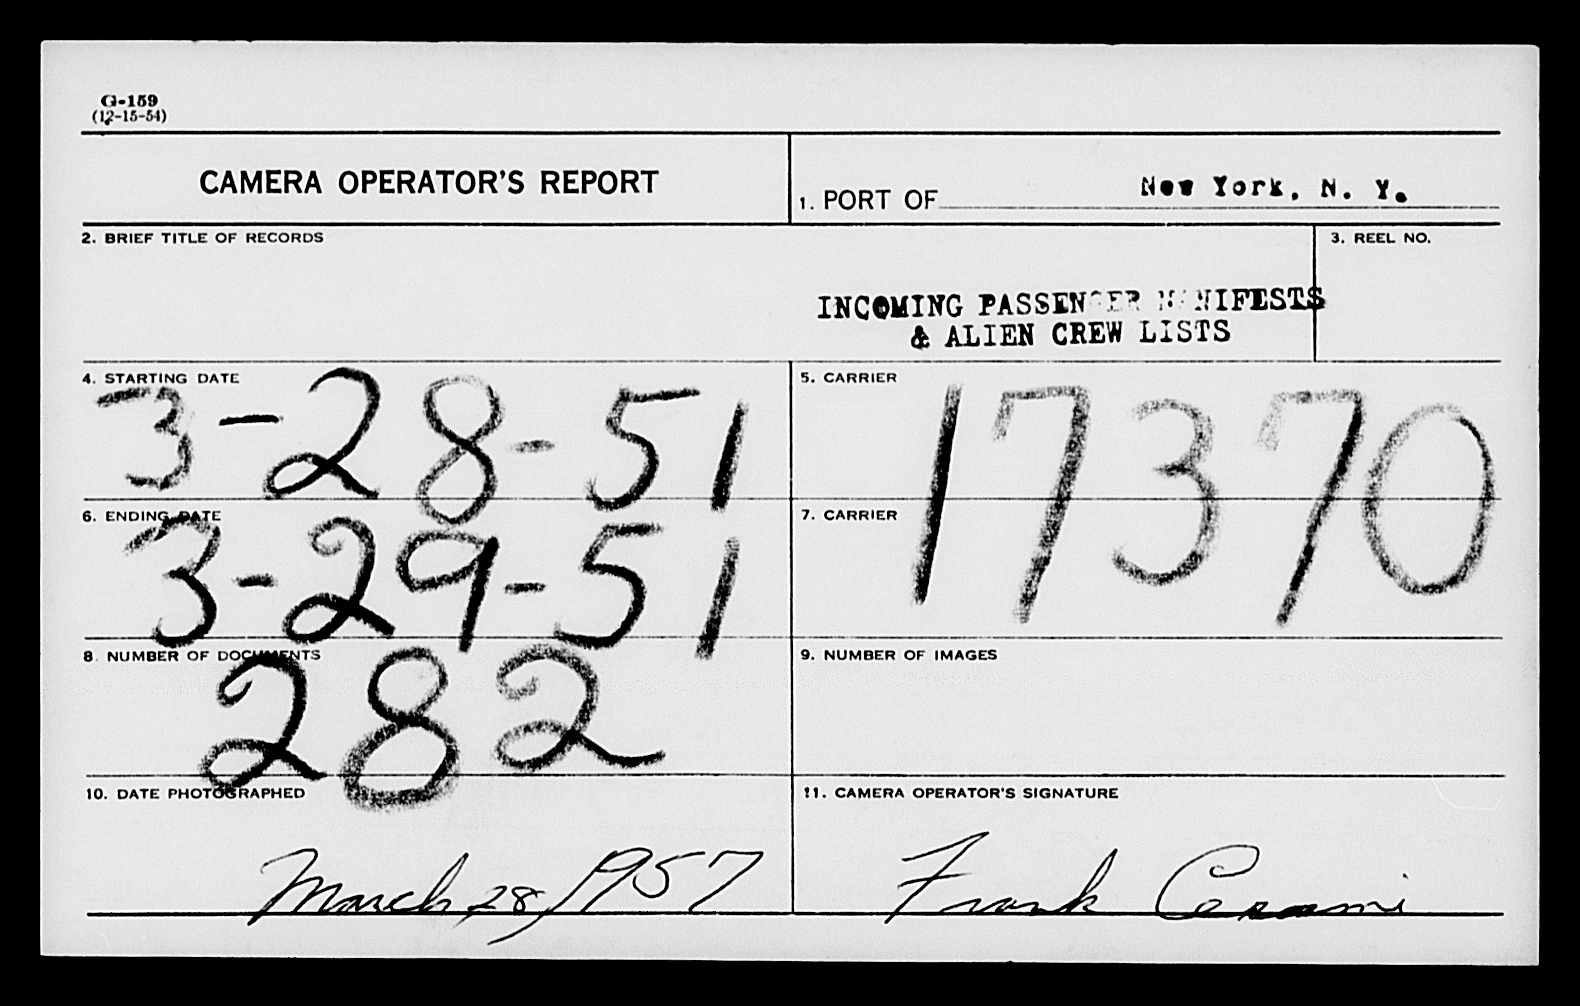 G-159
(12-15-54)
CAMERA OPERATOR'S REPORT
1. PORT OF New York, N. Y.
2. BRIEF TITLE OF RECORDS
3. REEL NO.
INCOMING PASSENGER MANIFESTS
& ALIEN CREW LISTS
4. STARTING DATE
3-28-51
5. CARRIER
17370
6. ENDING DATE
3-29-51
7. CARRIER
8. NUMBER OF DOCUMENTS
282
9. NUMBER OF IMAGES
10. DATE PHOTOGRAPHED
March 28, 1957
11. CAMERA OPERATOR'S SIGNATURE
Frank